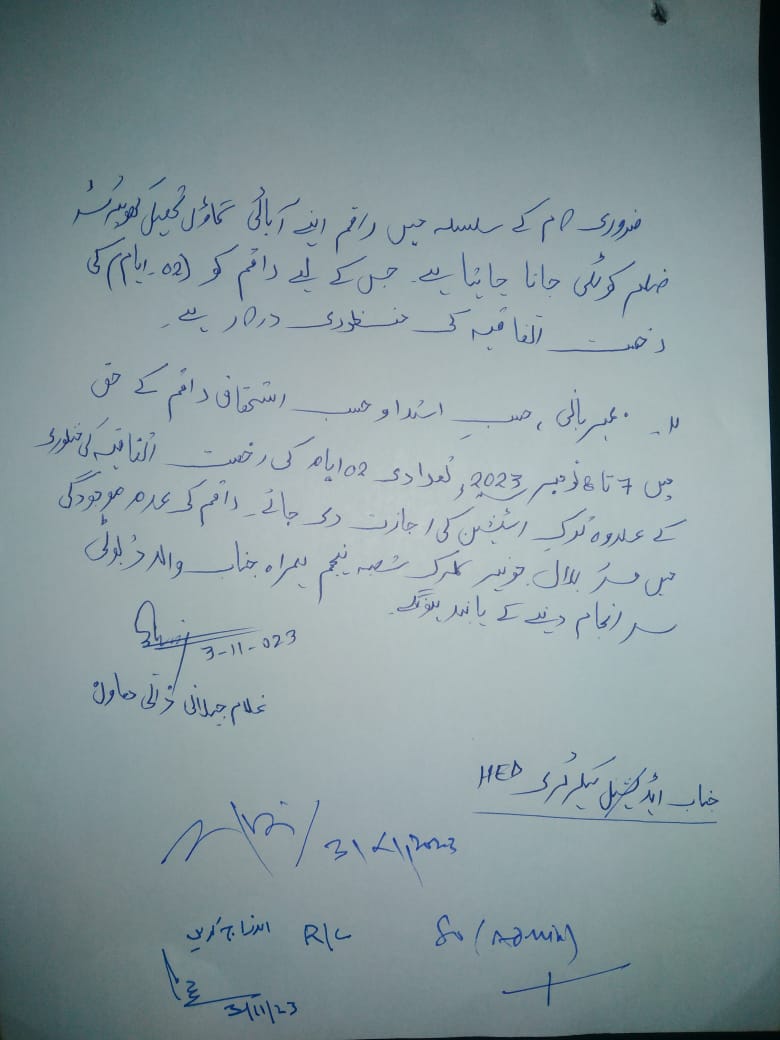 ضروری کام کے سلسلہ میں راقم اپنے آبائی گاؤں تحصیل کھوئیرٹہ
ضلع کوٹلی جانا چاہتا ہے۔ جس کے لیے راقم کو (02۔ایام) کی
رخصت اتفاقیہ کی منظوری درکار ہے۔
۲۔ بمہربانی، حسبِ استدعا و حسب استحقاق راقم کے حق
میں 7 تا 8 نومبر 2023ء تعدادی 02 ایام کی رخصت اتفاقیہ کی منظوری
کے علاوہ ترکِ اسٹیشن کی اجازت دی جائے۔ راقم کی عدم موجودگی
میں مسٹر بلال جونیئر کلرک شعبہ پنجم ہمراہ جناب والا ڈیوٹی
سر انجام دینے کے پابند ہونگے۔
3-11-023
غلام جیلانی ذاتی معاون
جناب ایڈیشنل سیکرٹری HED
3/11/2023
So (Admin)
R/C اندراج کریں
3/11/23